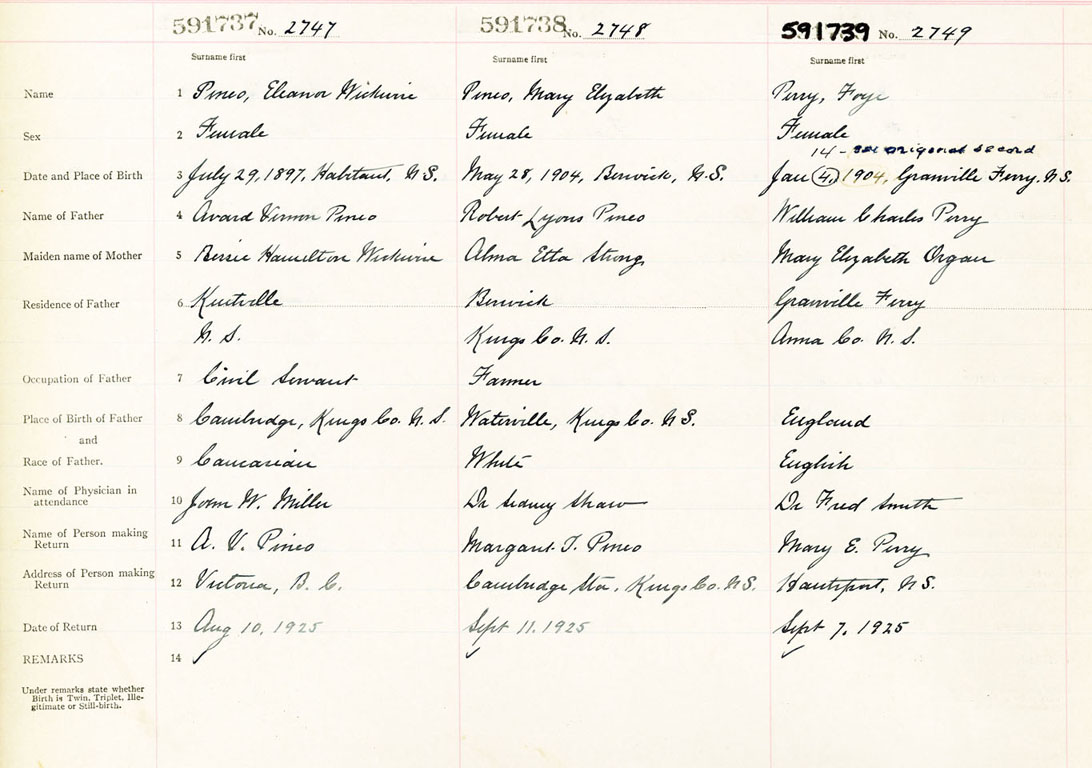 591737 No. 2747 591738 No. 2748 591739 No. 2749
Surname first Surname first Surname first
Name 1 Pineo, Eleanor Wickwire Pineo, Mary Elizabeth Perry, Foye
Sex 2 Female Female Female
14 - see original record
Date and Place of Birth 3 July 29, 1897, Habitant, N.S. May 28, 1904, Berwick, N.S. Jan 4, 1904, Granville Ferry, N.S.
Name of Father 4 Avard Vernon Pineo Robert Lyons Pineo William Charles Perry
Maiden name of Mother 5 Bessie Hamilton Wickwire Alma Etta Strong Mary Elizabeth Organ
Residence of Father 6 Kentville Berwick Granville Ferry
N. S. Kings Co. N. S. Anna Co. N. S.
Occupation of Father 7 Civil Servant Farmer
Place of Birth of Father 8 Cambridge, Kings Co. N. S. Waterville, Kings Co. N S. England
and
Race of Father. 9 Caucasian White English
Name of Physician in
attendance 10 John W. Miller Dr Sidney Shaw Dr Fred Smith
Name of Person making
Return 11 A. V. Pineo Margaret T. Pineo Mary E. Perry
Address of Person making
Return 12 Victoria, B. C. Cambridge Sta. Kings Co. N S. Hantsport, N S.
Date of Return 13 Aug 10, 1925 Sept 11, 1925 Sept 7, 1925
REMARKS 14
Under remarks state whether
Birth is Twin, Triplet, Ille-
gitimate or Still-birth.